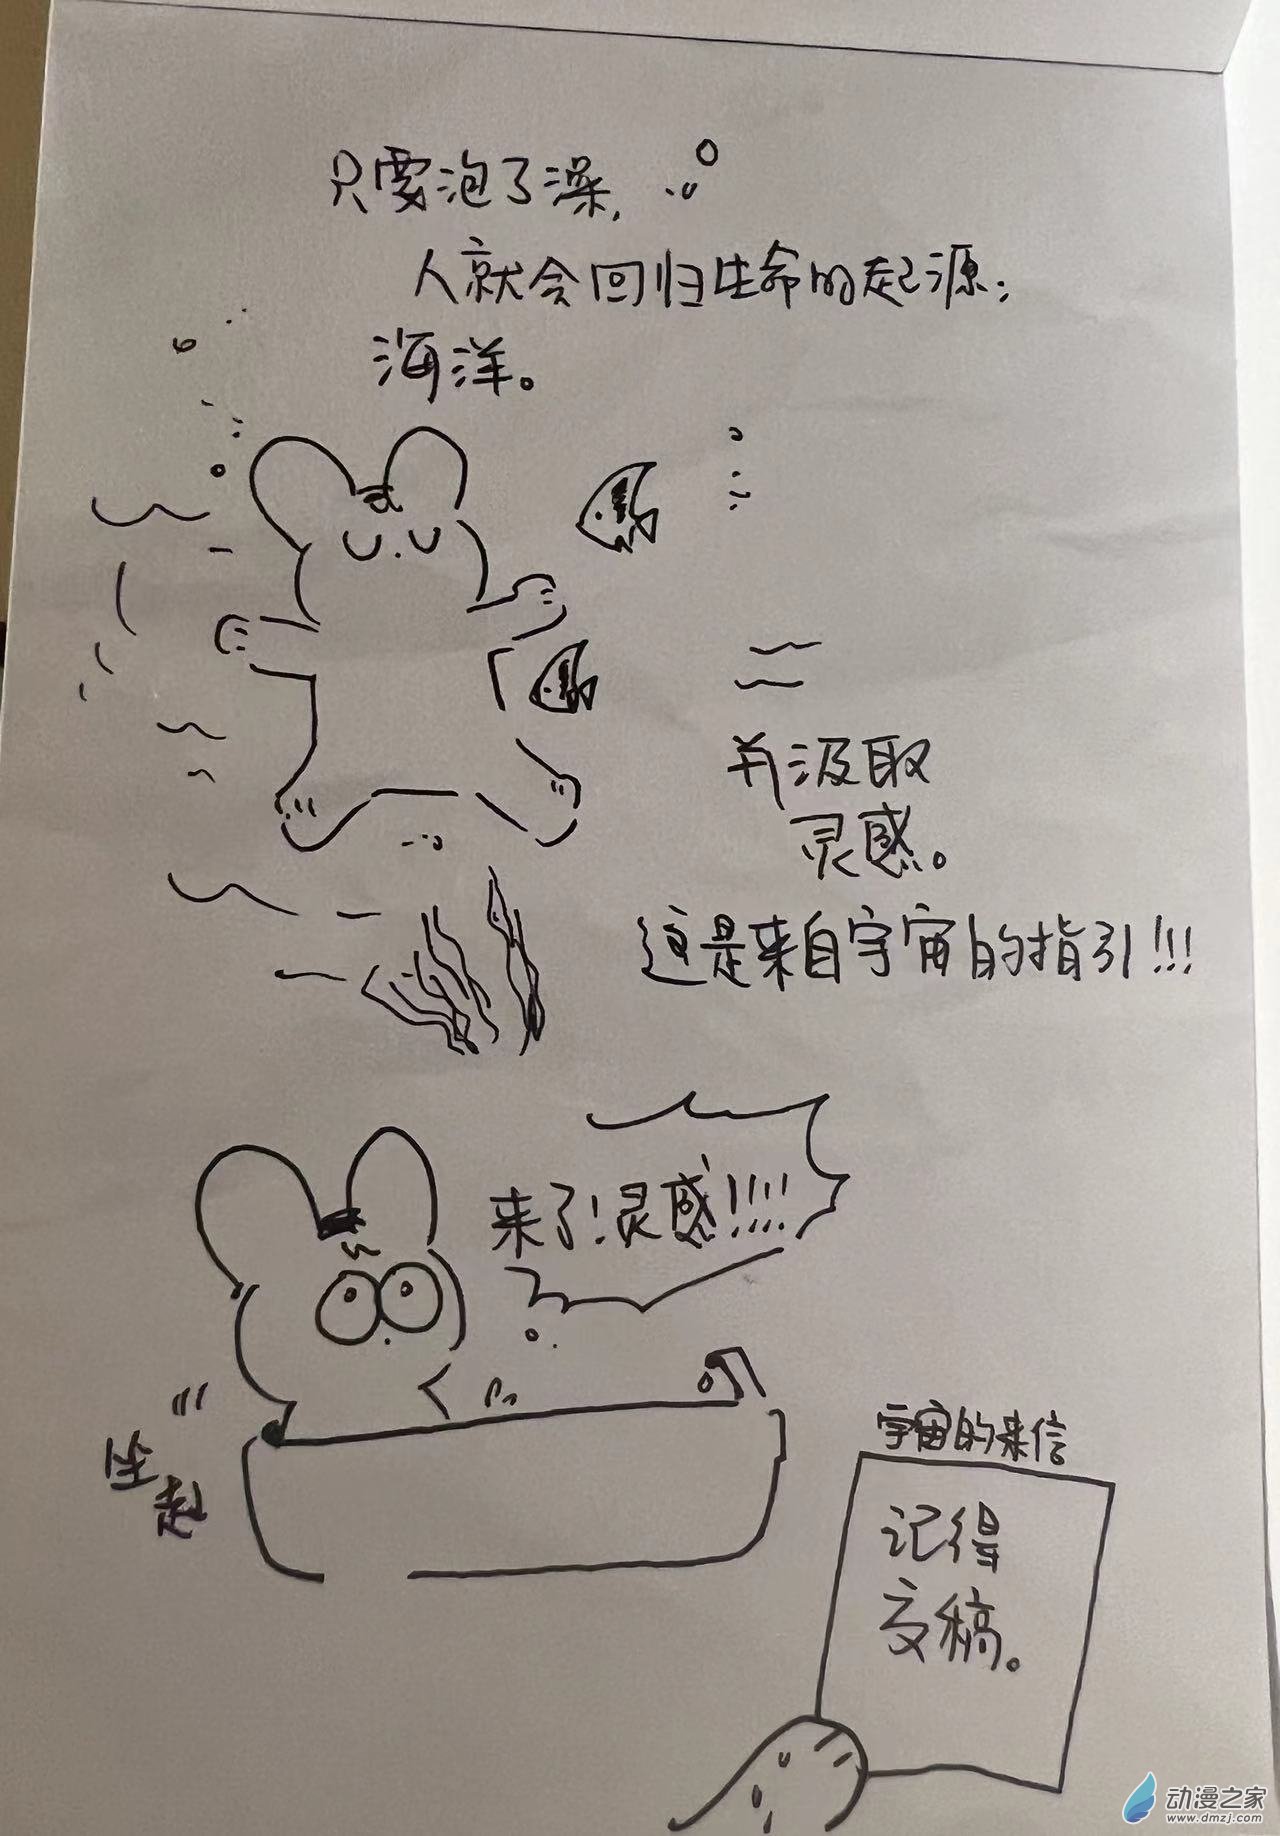 只要泡了澡,
人就会回归生命的起源:
海洋。
并汲取
灵感。
这是来自宇宙的指引!!!
来了!灵感!!!!
坐起
宇宙的来信
记得
交稿。
动漫之家
www.dmzj.com